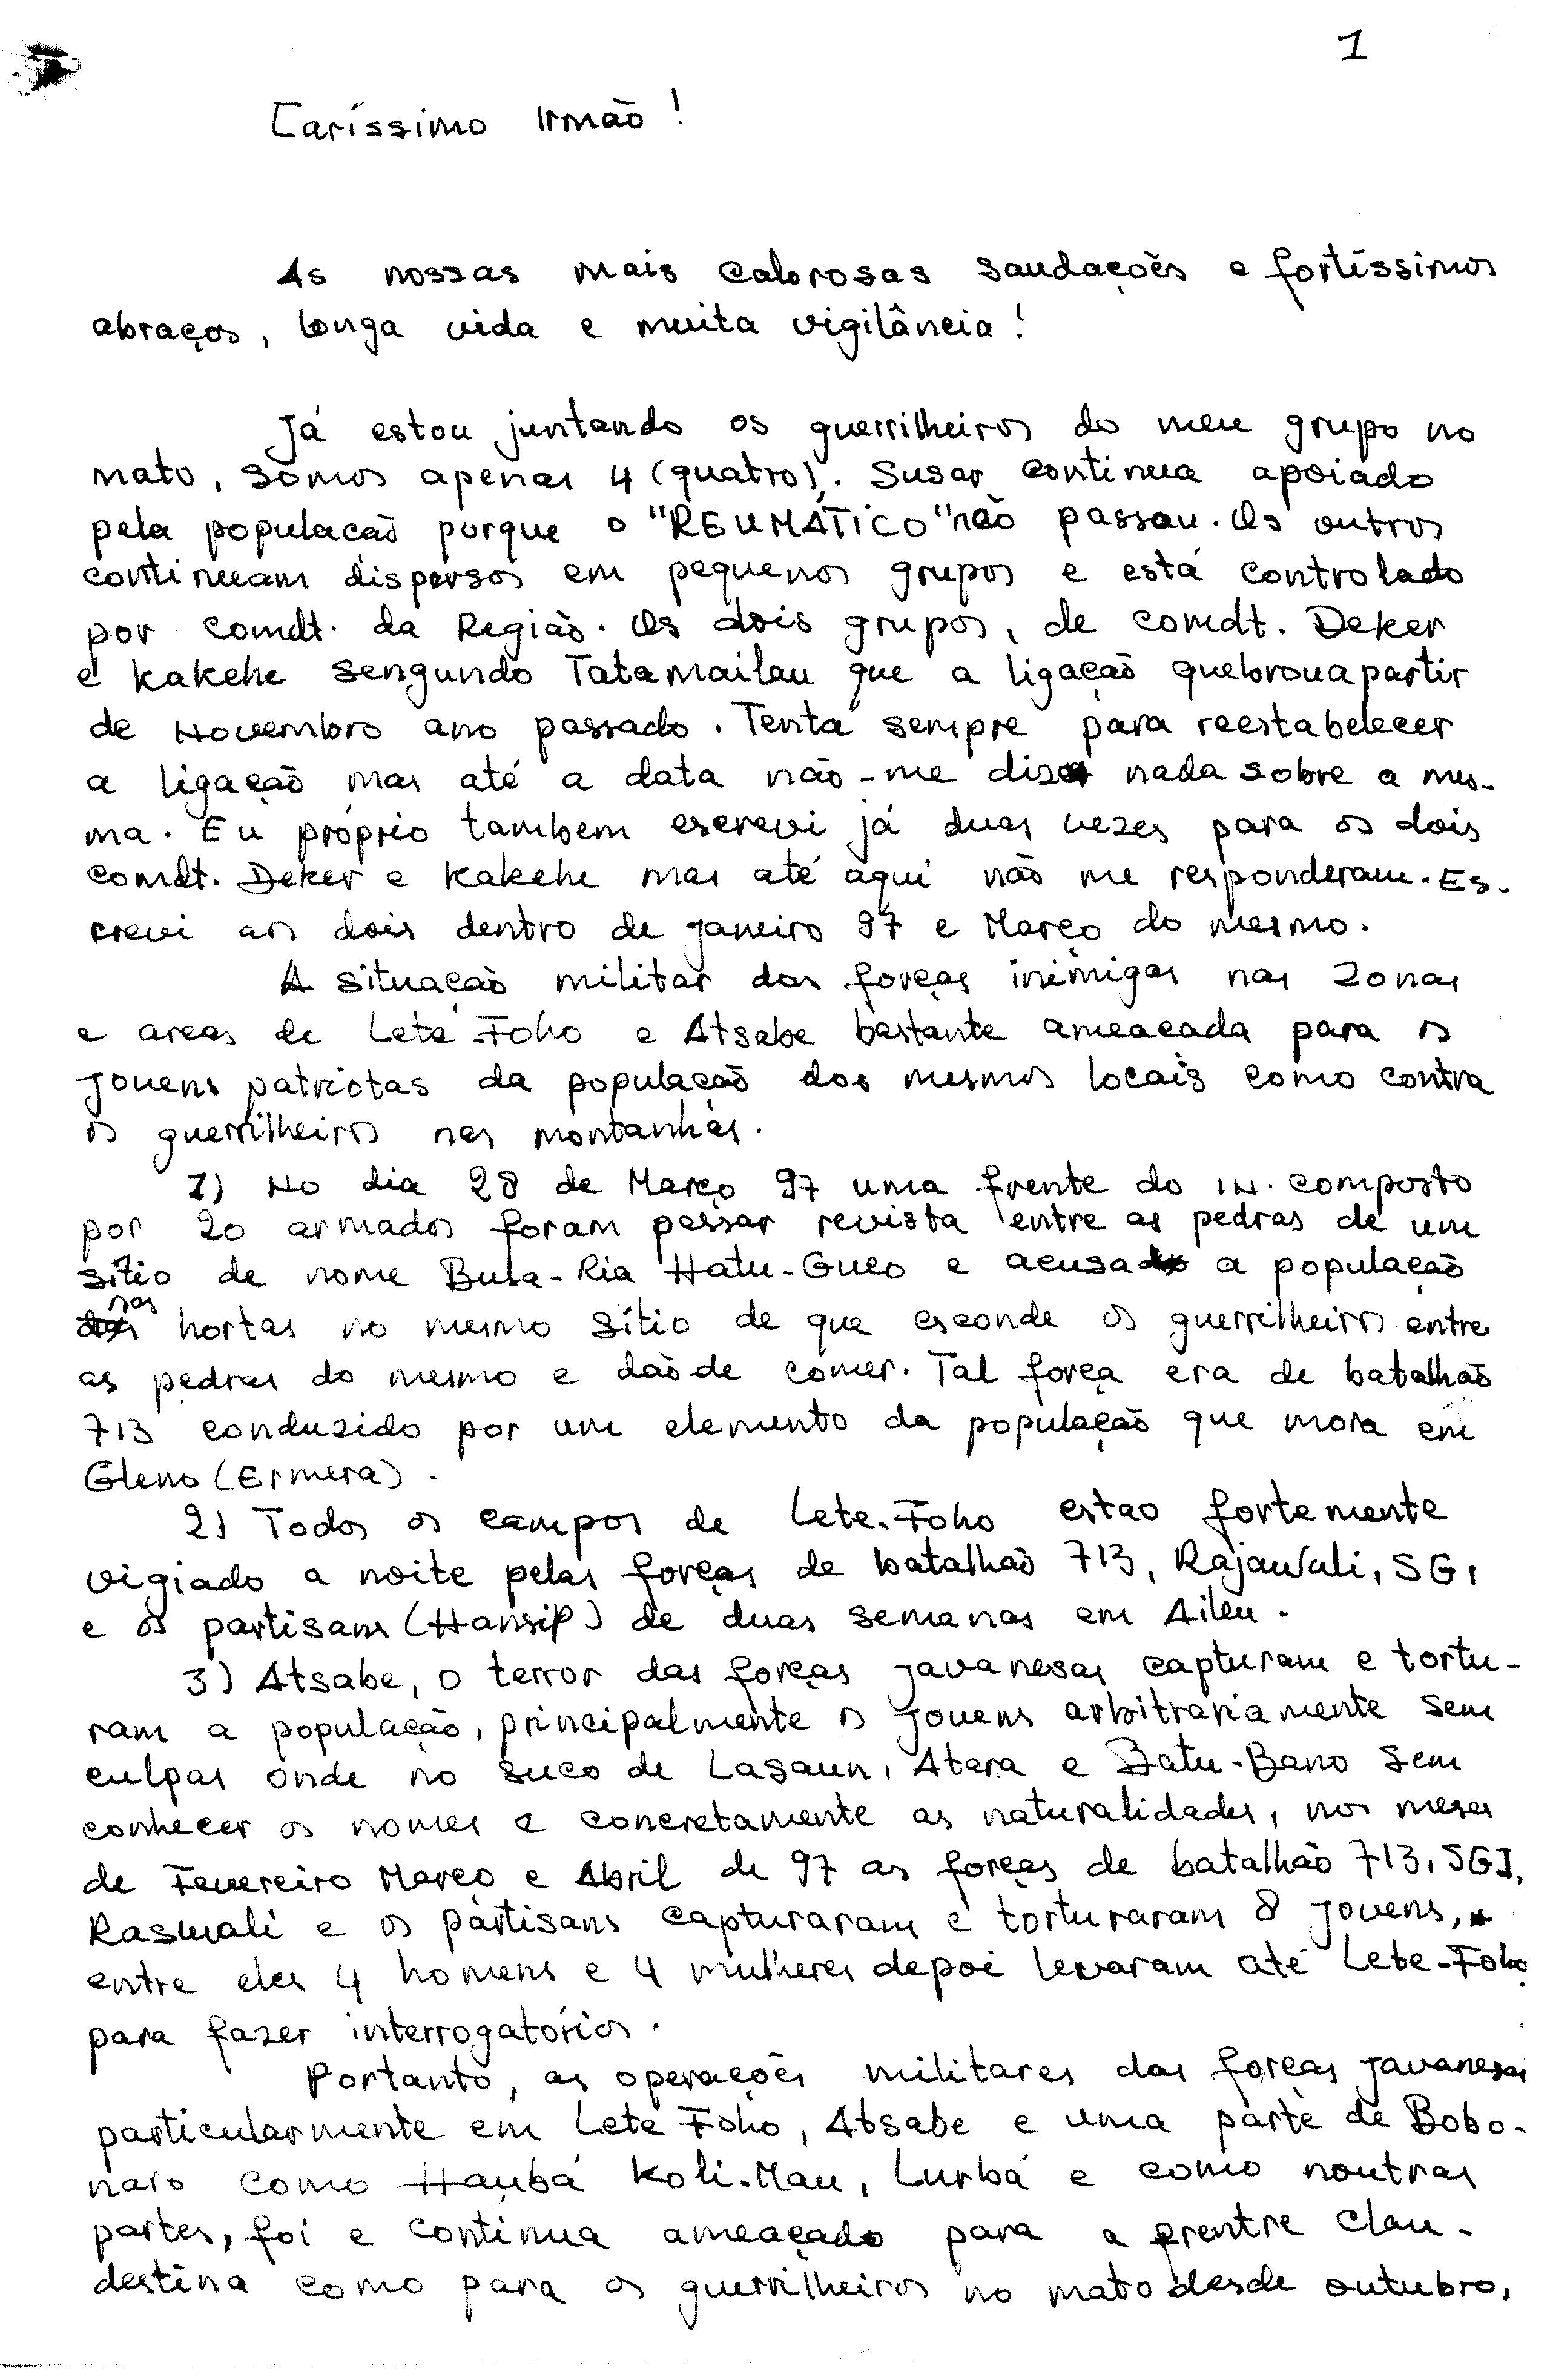 1
Caríssimo Irmão !
As nossas mais calorosas saudações e fortíssimos
abraços, longa vida e muita vigilância !
Já estou juntando os guerrilheiros do meu grupo no
mato, somos apenas 4 (quatro). Susar continua apoiado
pela populacão porque o "REUMÁTICO" não passou. Os outros
continuam dispersos em pequenos grupos e está controlado
por comdt. da Região. Os dois grupos, de comdt. Deker
e Kakehe sengundo Tatamailau que a ligação quebrou a partir
de Novembro ano passado. Tenta sempre para reestabelecer
a ligação mas até a data não-me diz nada sobre a mes-
ma. Eu próprio tambem escrevi já duas vezes para os dois
comdt. Deker e Kakehe mas até aqui não me responderam. Es-
crevi aos dois dentro de Janeiro 97 e Março do mesmo.
A situação militar das forças inimigas nas zonas
e areas de Lete-Foho e Atsabe bastante ameacada para os
Jovens patriotas da população dos mesmos locais como contra
os guerrilheiros nas montanhas.
1) No dia 28 de Março 97 uma frente do IN. composto
por 20 armados foram passar revista entre as pedras de um
sítio de nome Busa-Ria Hatu-Gueo e acusado a população
nas hortas no mesmo sítio de que esconde os guerrilheiros entre
as pedras do mesmo e dão de comer. Tal força era de batalhão
713 conduzido por um elemento da população que mora em
Gleno (Ermera).
2) Todos os campos de Lete-Foho estao fortemente
vigiado a noite pelas forças de batalhão 713, Rajawali, SGI
e os partisans (Hansip) de duas semanas em Aileu.
3) Atsabe, o terror das forças Javanesas capturam e tortu-
ram a população, principalmente os Jovens arbitrariamente sem
culpas onde no suco de Lasaun, Atara e Batu-Bano sem
conhecer os nomes e concretamente as naturalidades, nos meses
de Fevereiro Março e Abril de 97 as forças de batalhão 713, SGI,
Raswali e os partisans capturaram e torturaram 8 Jovens,
entre eles 4 homens e 4 mulheres depoi levaram até Lete-Foho
para fazer interrogatórios.
Portanto, as operações militares das forças Javanesas
particularmente em Lete Foho, Atsabe e uma parte de Bobo-
naro como Haubá Koli-Mau, Lurbá e como noutras
partes, foi e continua ameaçado para a frentre clan-
destina como para os guerrilheiros no mato desde outubro,